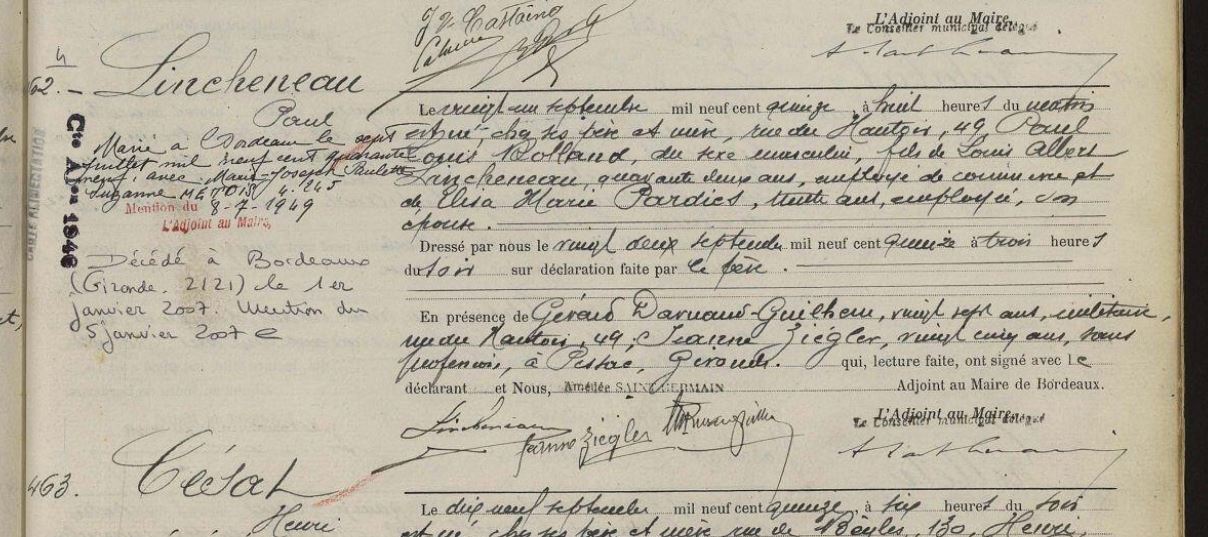 J. V. Castaing
L'Adjoint au Maire,
Le Conseiller municipal délégué
462. - Lincheneau
Paul
Le vingt un septembre mil neuf cent quinze, à huit heures du matin
est né, chez ses père et mère, rue du Hautoir, 49, Paul
Louis Rolland, du sexe masculin, fils de Louis Albert
Lincheneau, quarante deux ans, employé de commerce et
de Elisa Marie Pardies, trente ans, employée, son
épouse.
Dressé par nous le vingt deux septembre mil neuf cent quinze à trois heures
du soir sur déclaration faite par le père.
En présence de Gérard Darnaud-Guilhem, vingt sept ans, militaire,
rue du Hautoir, 49, Jeanne Ziégler, vingt cinq ans, sans
profession, à Pessac, Gironde. qui, lecture faite, ont signé avec le
déclarant et Nous, Amédée SAINT-GERMAIN Adjoint au Maire de Bordeaux.
Marié à Bordeaux le sept
juillet mil neuf cent quarante
neuf, avec Marie-Joseph Paulette
Suzanne METOIS 4.245
Mention du 8-7-1949
L'Adjoint au Maire,
Cte AI 1946
Décédé à Bordeaux
(Gironde. 2121) le 1er
janvier 2007. Mention du
5 janvier 2007
Lincheneau
Jeanne Ziégler
L'Adjoint au Maire,
Le Conseiller municipal délégué
463. Césat
Henri
Le dix neuf septembre mil neuf cent quinze, à six heures du soir
est né, chez ses père et mère rue de Bègles, 130, Henri,